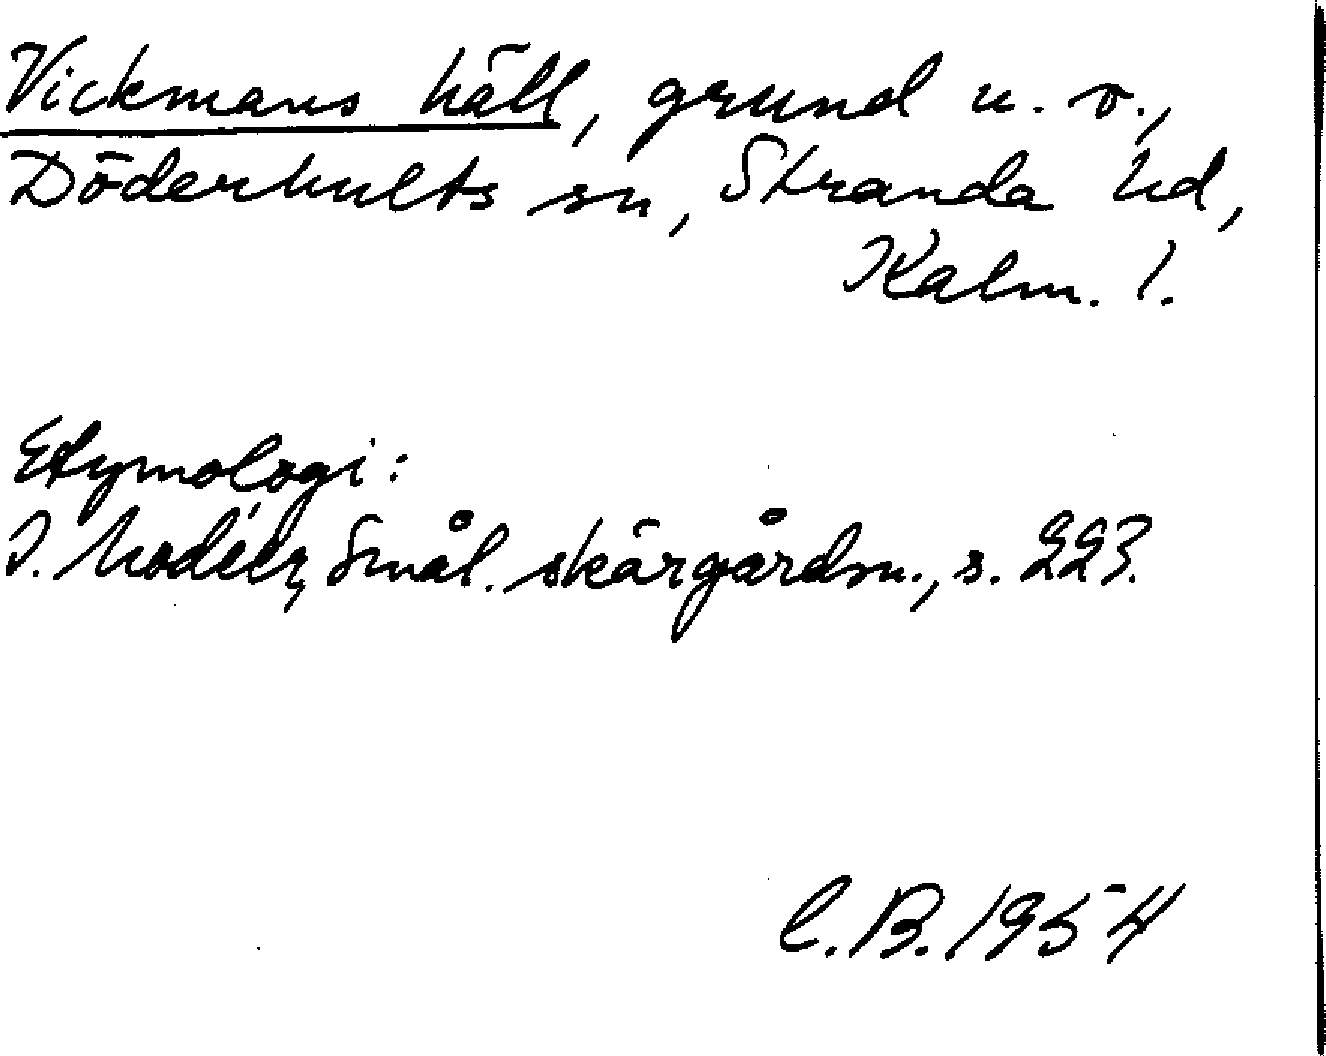 Vickmans häll, grund u. v.,
Döderhults sn, Stranda hd,
Kalm. l.
Etymologi:
I. Modéer, Smål. skärgårdsn., s. 223.
C.B. 1954